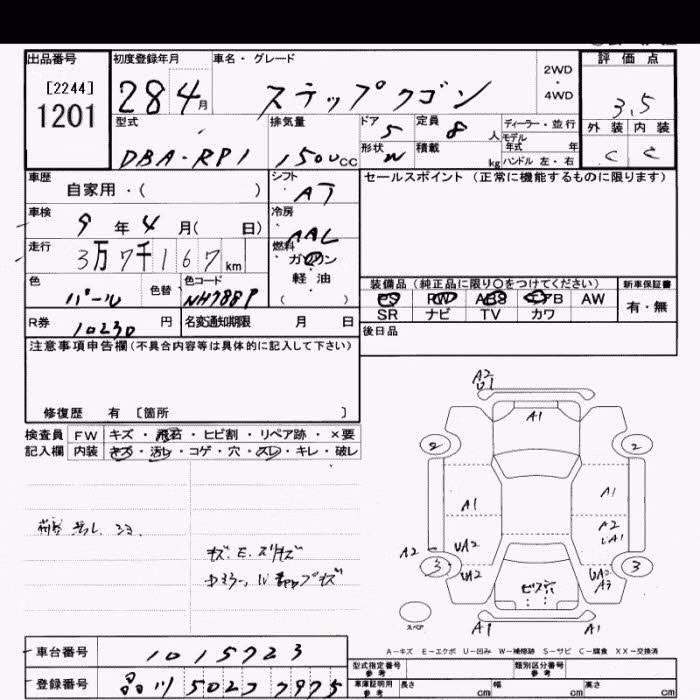 出品番号 初度登録年月 車名・グレード 評価点
[2244]
1201
28 4月 ステップワゴン 2WD・4WD 3.5
型式 排気量 ドア 定員 ディーラー・並行 外装 内装
DBA-RP1 1500cc 5 8人 モデル年式 年 C C
形状 W 積載 kg ハンドル 左・右
車歴 シフト セールスポイント (正常に機能するものに限ります)
自家用・( ) AT
車検 冷房
9年4月( 日) AAC
走行 燃料
3万7千167km ガソリン
軽・油
( )
色 色替 色コード 装備品(純正品に限り○をつけてください) 新車保証書
パール NH788P PS PW ABS エアB AW 有・無
SR ナビ TV カワ
R券 10230円 名変通知期限 月 日 後日品
注意事項申告欄(不具合内容等は具体的に記入して下さい)
修復歴 有 [箇所 ]
検査員 FW キズ・飛石・ヒビ割・リペア跡・×要
記入欄 内装 キズ・汚レ・コゲ・穴・スレ・キレ・破レ
A2
A1
2 2
A1 A1
A2
A2 UA2 UA1
3 UA2 ビス穴 UA2 3
A3
スペア A1 A1
A-キズ E-エクボ U-凹み W-補修跡 S-サビ C-腐食 XX-交換済
車台番号 1015723
登録番号 品川 502 7975
型式指定番号 参考 類別区分番号 参考
車庫証明用 参考 長さ cm 幅 cm 高さ cm